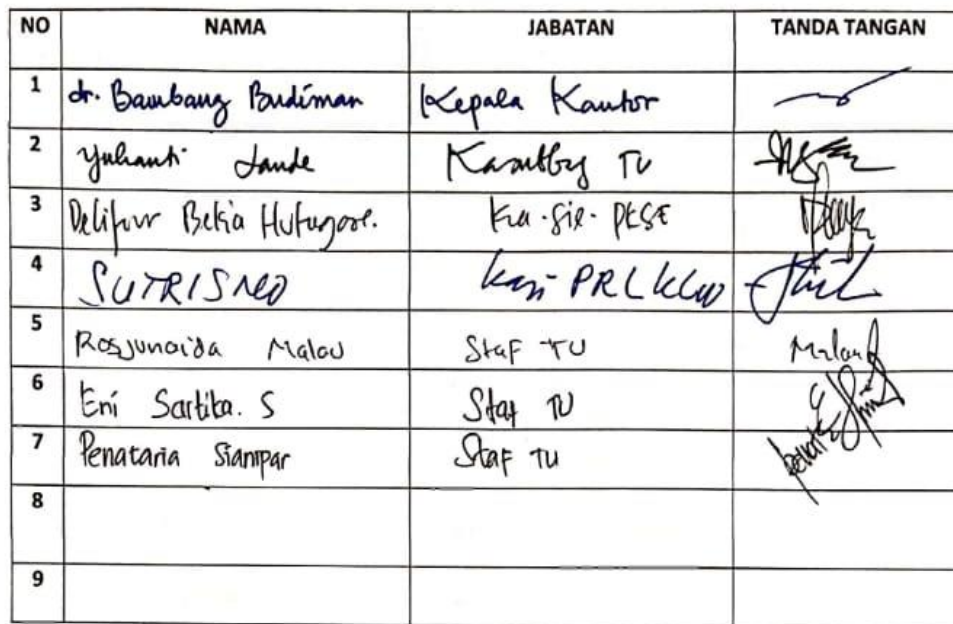 NO NAMA JABATAN TANDA TANGAN
1 dr. Bambang Budiman Kepala Kantor
2 Yulianti Lande Kasubbag TU
3 Betia Hutagaol. Ka-Sie- PKSE
4 SUTRISNO Kasi PRL
5 Rosjunaida Malau Staf TU Malau
6 Eni Sartika. S Staf TU
7 Penataria Sianipar Staf TU
8
9